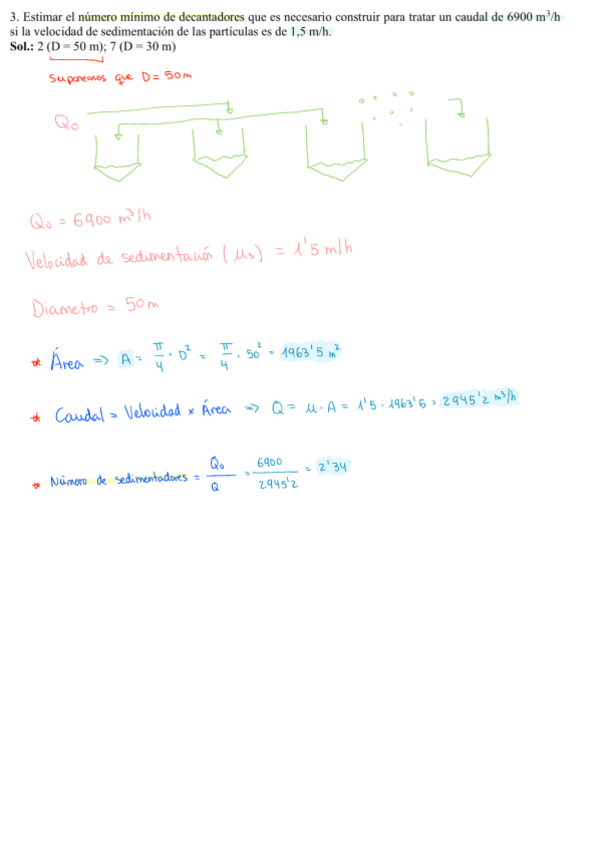 3. Estimar el número mínimo de decantadores que es necesario construir para tratar un caudal de 6900 m³/h
si la velocidad de sedimentación de las partículas es de 1,5 m/h.
Sol.: 2 (D = 50 m); 7 (D = 30 m)
Suponemos que D = 50m
Q₀
Q₀ = 6900 m³/h
Velocidad de sedimentación (μs) = 1'5 m/h
Diametro = 50m
* Área => A = π/4 · D² = π/4 · 50² = 1963'5 m²
* Caudal = Velocidad x Área => Q = μ · A = 1'5 · 1963'5 = 2945'2 m³/h
* Número de sedimentadores = Q₀/Q = 6900/2945'2 = 2'34